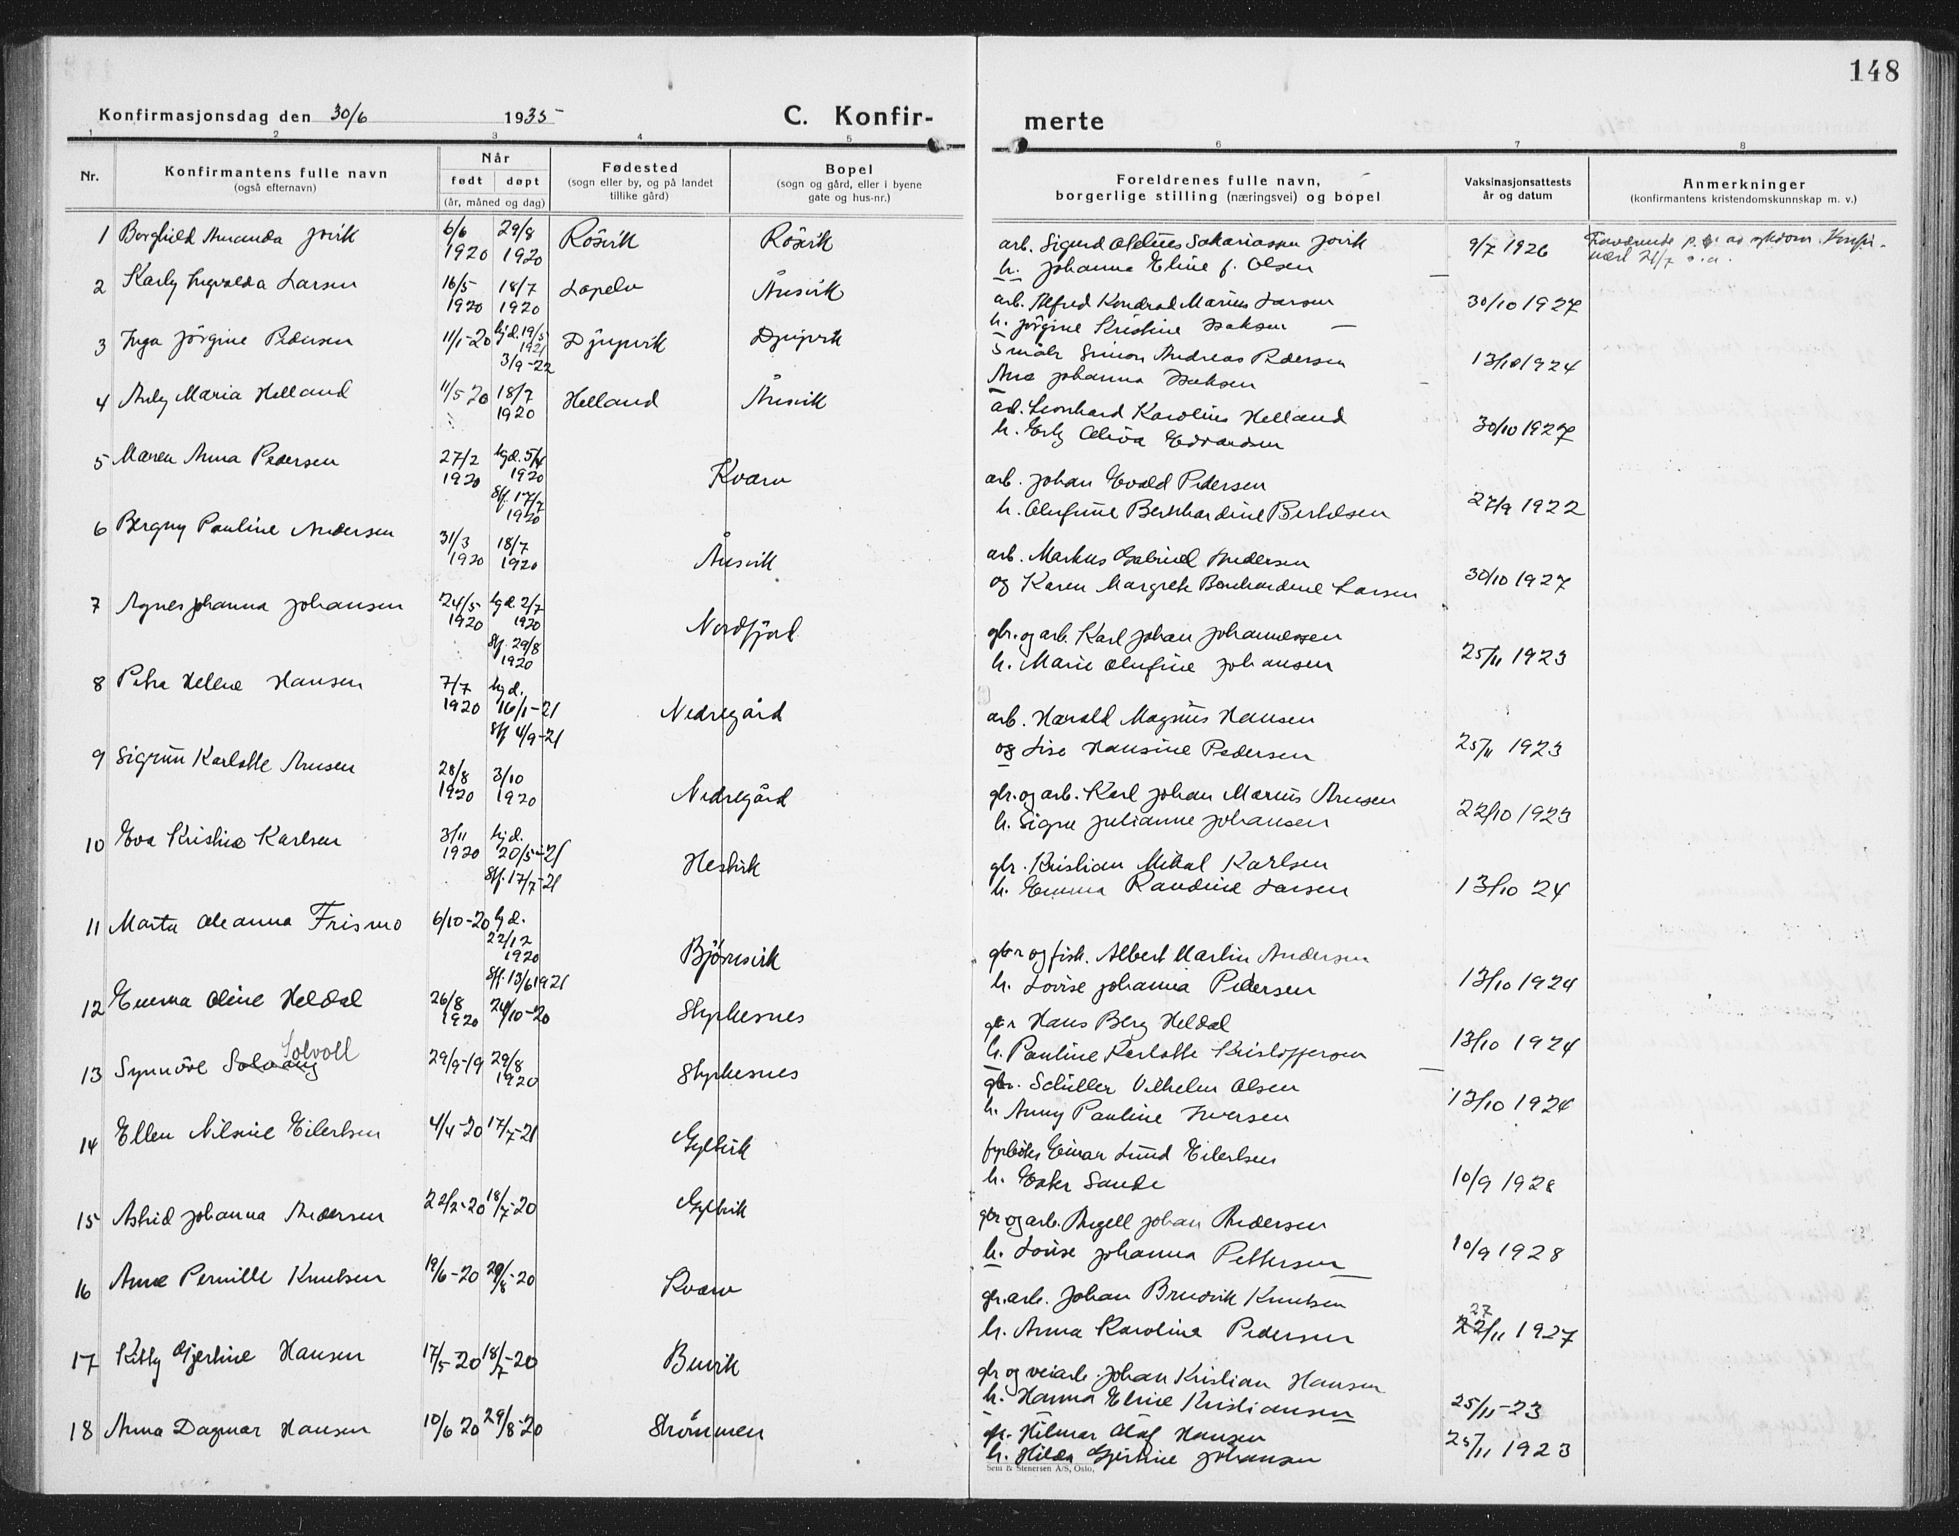 148
Konfirmasjonsdag den 30/6 1935 C. Konfirmerte
1 2 3 4 5 6 7 8
Nr. Konfirmantens fulle navn (også efternavn) Når født døpt (år, måned og dag) Fødested (sogn eller by, og på landet tillike gård) Bopel (sogn og gård, eller i byene gate og hus-nr.) Foreldrenes fulle navn, borgerlige stilling (næringsvei) og bopel Vaksinasjonsattests år og datum Anmerkninger (konfirmantens kristendomskunnskap m. v.)
1 Borghild Amanda Jovik 6/6 1920 29/8 1920 Rösvik Rösvik arb. Sigurd Sakariassen Jovik 9/7 1926 Fraværende p. gr. av sykdom. Konfir-
h. Johanna Eline f. Olsen mert 21/7 s. a.
2 Karly Ingvalda Larsen 16/5 1920 18/7 1920 Løpelv Ånsvik arb. Alfred Kondrad Marius Larsen 30/10 1927
h. Jörgine Kristine Isaksen
3 Inga Jörgine Pedersen 11/1-20 hjd. 19/5 1921 3/9-22 Djupvik Djupvik Småbr Simon Andreas Pedersen 13/10 1924
Ane Johanna Isaksen
4 Arly Maria Helland 11/5 20 18/7 1920 Helland Ånsvik arb. Leonhard Karolius Helland 30/10 1927
h. Erly Oliva Edvardsen
5 Maren Anna Pedersen 27/2 1920 hjd. 5/4 1920 Stf. 17/7 1920 Kvarv arb. Johan Evald Pedersen 27/9 1922
h. Olufine Bernhardine Bertelsen
6 Bergny Pauline Andersen 31/3 1920 18/7 1920 Ånsvik arb. Markus Gabriel Andersen 30/10 1927
og Karen Margrete Bernhardine Larsen
7 Agnes Johanna Johansen 24/5 1920 hjd. 2/7 1920 Stf. 29/8 1920 Nordfjord gbr. og arb. Karl Johan Johannessen 25/11 1923
h. Marie Olufine Johansen
8 Petra Helene Hansen 7/7 1920 hjd. 16/1-21 Stf 4/9-21 Nedregård arb. Harald Magnus Hansen 25/11 1923
og Lise Hansine Pedersen
9 Sigrun Karlotte Arnsen 28/8 1920 3/10 1920 Nedregård gbr. og arb. Karl Johan Marius Arnsen 22/10 1923
h. Signe Julianne Johansen
10 Eva Kristine Karlsen 3/11 1920 hjd. 20/5-21 Stf. 17/7-21 Hestvik gbr. Kristian Mikal Karlsen 13/10 24
h. Emma Randine Larsen
11 Marta Oleanna Frismo 6/10-20 hjd. 22/12 1920 Stf. 13/6 1921 Björnsvik gbr og fisk. Albert Martin Andersen 13/10 1924
h. Lovise Johanna Pedersen
12 Emma Oline Heldal 26/8 1920 24/10-20 Styrkesnes gbr Hans Berg Heldal 13/10 1924
h. Pauline Karlotte Kristoffersen
Solvoll
13 Synnöve Solvang 29/9-19 29/8 1920 Styrkesnes gbr. Schiller Vilhelm Olsen 13/10 1924
h. Anny Pauline Iversen
14 Ellen Nilsine Eilertsen 4/4-20 17/7-21 Gyltvik fyrböter Einar Lund Eilertsen 10/9 1928
h. Ester Sande
15 Astrid Johanna Andersen 22/2-20 18/7-20 Gyltvik gbr og arb. Angell Johan Andersen 10/9 1928
h. Lovise Johanna Pettersen
16 Anne Pernille Knutsen 19/6-20 29/8-20 Kvarv gbr. arb. Johan Brudvik Knutsen 27
h. Anna Karoline Pedersen 22/11 1927
17 Kitty Gjertine Hansen 17/5-20 18/7-20 Buvik gbr og veiarb. Johan Kristian Hansen
h. Hanna Eline Kristiansen 25/11-23
18 Anna Dagmar Hansen 10/6 20 29/8-20 Strömmen gbr. Hilmar Olaf Hansen 25/11 1923
h. Hilda Gjertine Johansen
Sem & Stenersen A/S, Oslo.